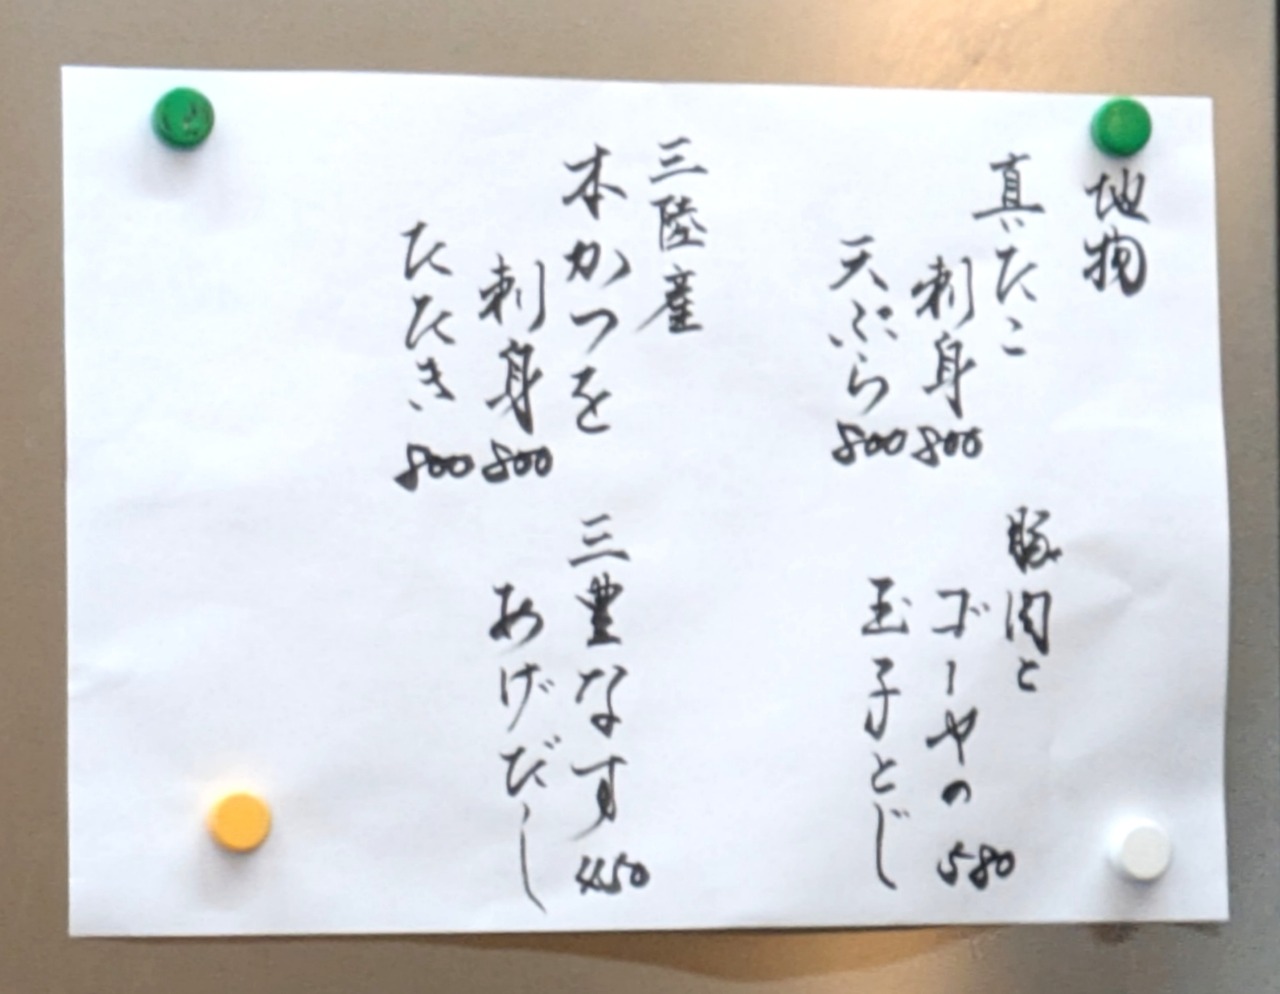 地物
真だこ
刺身 800
天ぷら 800
三陸産
本かつを
刺身 800
たたき 800
豚肉と
ゴーヤの 580
玉子とじ
三豊なす 450
あげだし